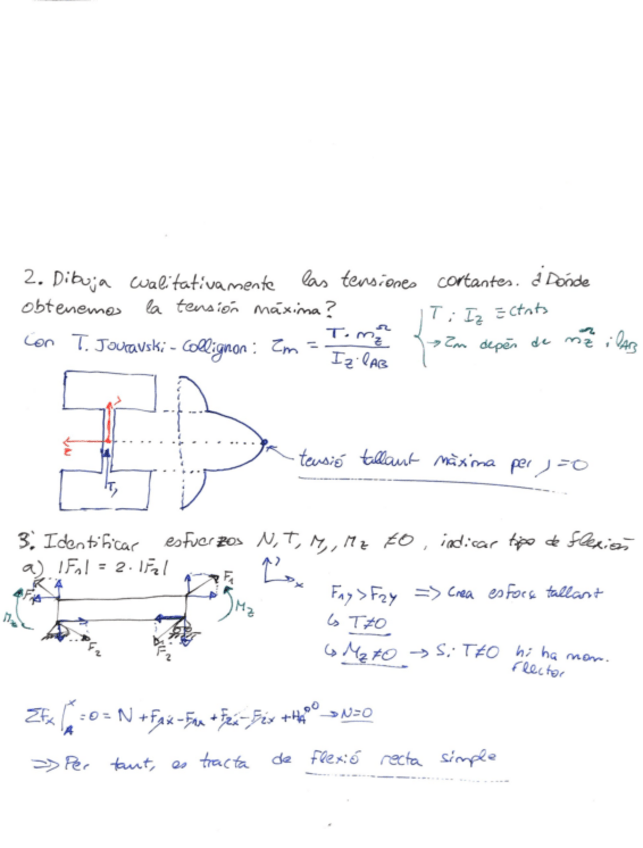 2. Dibuja cualitativamente las tensiones cortantes. ¿Dónde
obtenemos la tensión máxima?
Con T. Jouravski-Collignon: τm = T·m_z^Ω / I_z·l_AB
T i I_z ≡ ctnts
→ τm depèn de m_z^Ω i l_AB
y
z
T_y
tensió tallant màxima per y=0
3. Identificar esfuerzos N, T, M_y, M_z ≠0, indicar tipo de flexión
a) |F₁| = 2·|F₂|
y
x
F₁
F₁
M_z
M_z
F₂
F₂
F₁y > F₂y => Crea esforç tallant
↳ T≠0
↳ M_z≠0 → Si T≠0 hi ha mom.
flector
ΣF_x |_A^x =0 = N + F₁x - F₁x + F₂x - F₂x + H_A^0 → N=0
=> Per tant, es tracta de flexió recta simple